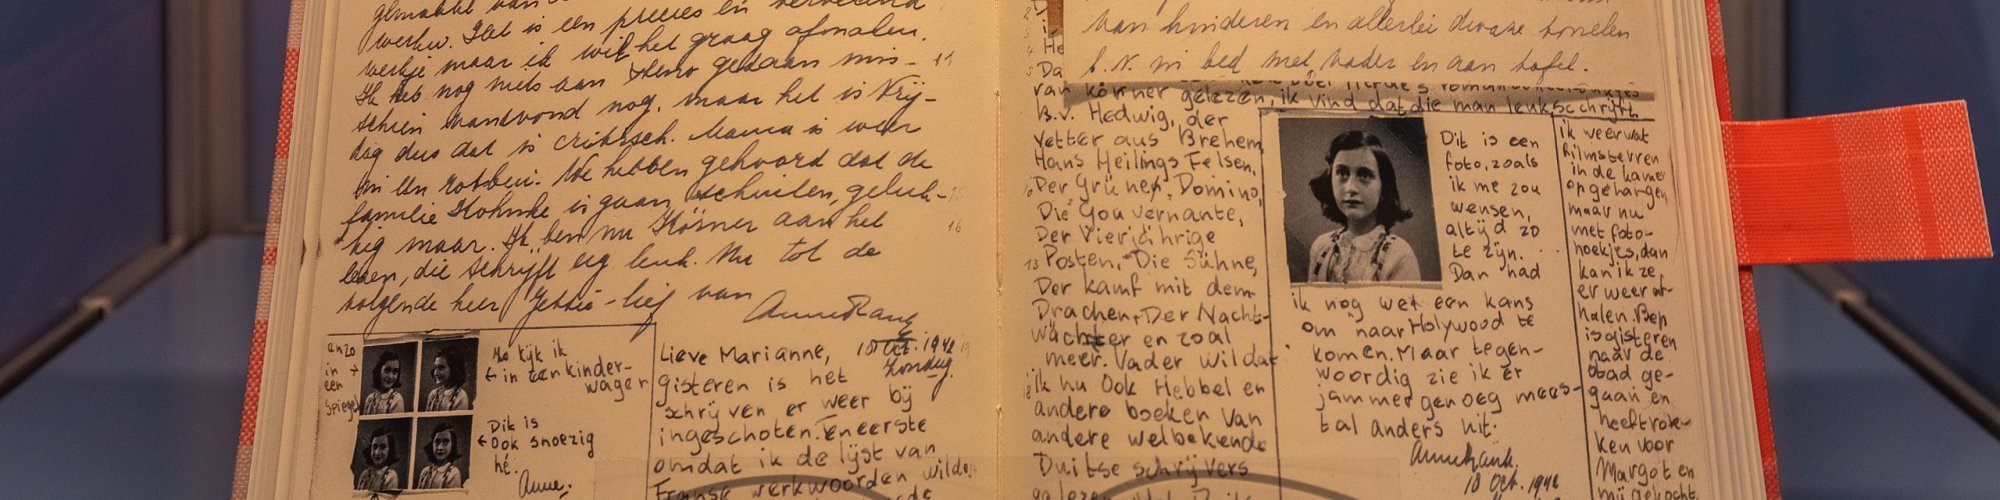 werkw. Het is een precies en vervelend
werkje maar ik wil het graag afmalen.
Ik heb nog niets aan steno gedaan mis-
schien vanavond nog, maar het is Vrij-
dag dus dat is critisch. Mama is weer
We hebben gehoord dat de
familie Kohnke is gaan schuilen, geluk-
kig maar. Ik ben nu Körner aan het
lezen, die schrijft erg leuk. Nu tot de
volgende keer Jettie-lief van
Anne Frank
enzo
in →
een
Spiegel
Zo kijk ik
← in een kinder-
wagen
Dit is
← Ook snoezig
hé.
Anne.
10 Oct. 1942
Zondag
Lieve Marianne,
gisteren is het
schrijven er weer bij
ingeschoten. Ten eerste
omdat ik de lijst van
Franse werkwoorden wilde
van kinderen en allerlei dwaze tonelen
b.v. in bed met vader en aan tafel.
van körner gelezen, ik vind dat die man leuk schrijft.
B.v. Hedwig, der
Vetter aus Brehem,
Hans Heilings Felsen,
Der Grüne, Domino,
Die Gouvernante,
Der Vierjährige
Posten, Die Sühne,
Der Kamf mit dem
Drachen, Der Nacht-
wächter en zoal
meer. Vader wil dat
ik nu Ook Hebbel en
andere boeken van
andere welbekende
Duitse schrijvers
Dit is een
foto, zoals
ik me zou
wensen,
altijd zo
te zijn.
Dan had
ik nog wel een kans
om naar Holywood te
komen. Maar tegen-
woordig zie ik er
jammer genoeg mees-
tal anders uit.
Annefrank.
10 Oct. 1942
ik weer wat
filmsterren
in de kamer
opgehangen
maar nu
met foto-
hoekjes, dan
kan ik ze
er weer af-
halen. Bep
is gisteren
naar de
stad ge-
gaan en
heeft rok-
ken voor
Margot en
mij gekocht